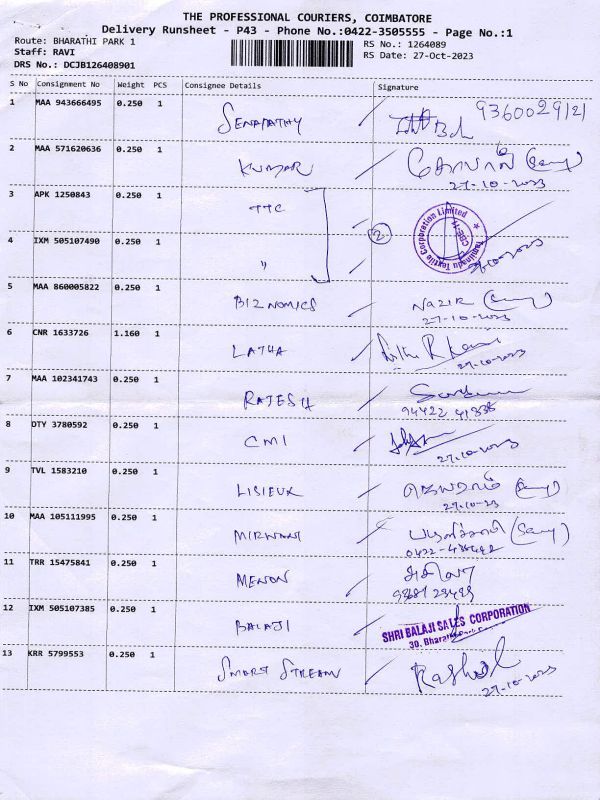 THE PROFESSIONAL COURIERS, COIMBATORE
Delivery Runsheet - P43 - Phone No.:0422-3505555 - Page No.:1
Route: BHARATHI PARK 1
RS No.: 1264089
Staff: RAVI
RS Date: 27-Oct-2023
DRS No.: DCJB126408901
S No Consignment No Weight PCS Consignee Details Signature
1 MAA 943666495 0.250 1 SENAPATHY 9360029121
2 MAA 571620636 0.250 1 KUMAR கோபால்
27-10-2023
3 APK 1250843 0.250 1 TTC
Tamilnadu Textile Corporation Limited
4 IXM 505107490 0.250 1 "
2
5 MAA 860005822 0.250 1 BIZNOMICS NAZIR
27-10-2023
6 CNR 1633726 1.160 1 LATHA
27-10-2023
7 MAA 102341743 0.250 1 RAJESH
94422 41338
8 DTY 3780592 0.250 1 CMI
27-10-2023
9 TVL 1583210 0.250 1 LISIEUX ஜெயராம்
27-10-23
10 MAA 105111995 0.250 1 MIRWANI
11 TRR 15475841 0.250 1 MENON
12 IXM 505107385 0.250 1 BALAJI SHRI BALAJI SALES CORPORATION
30, Bharathi
13 KRR 5799553 0.250 1 SMART STREAM
27-10-2023